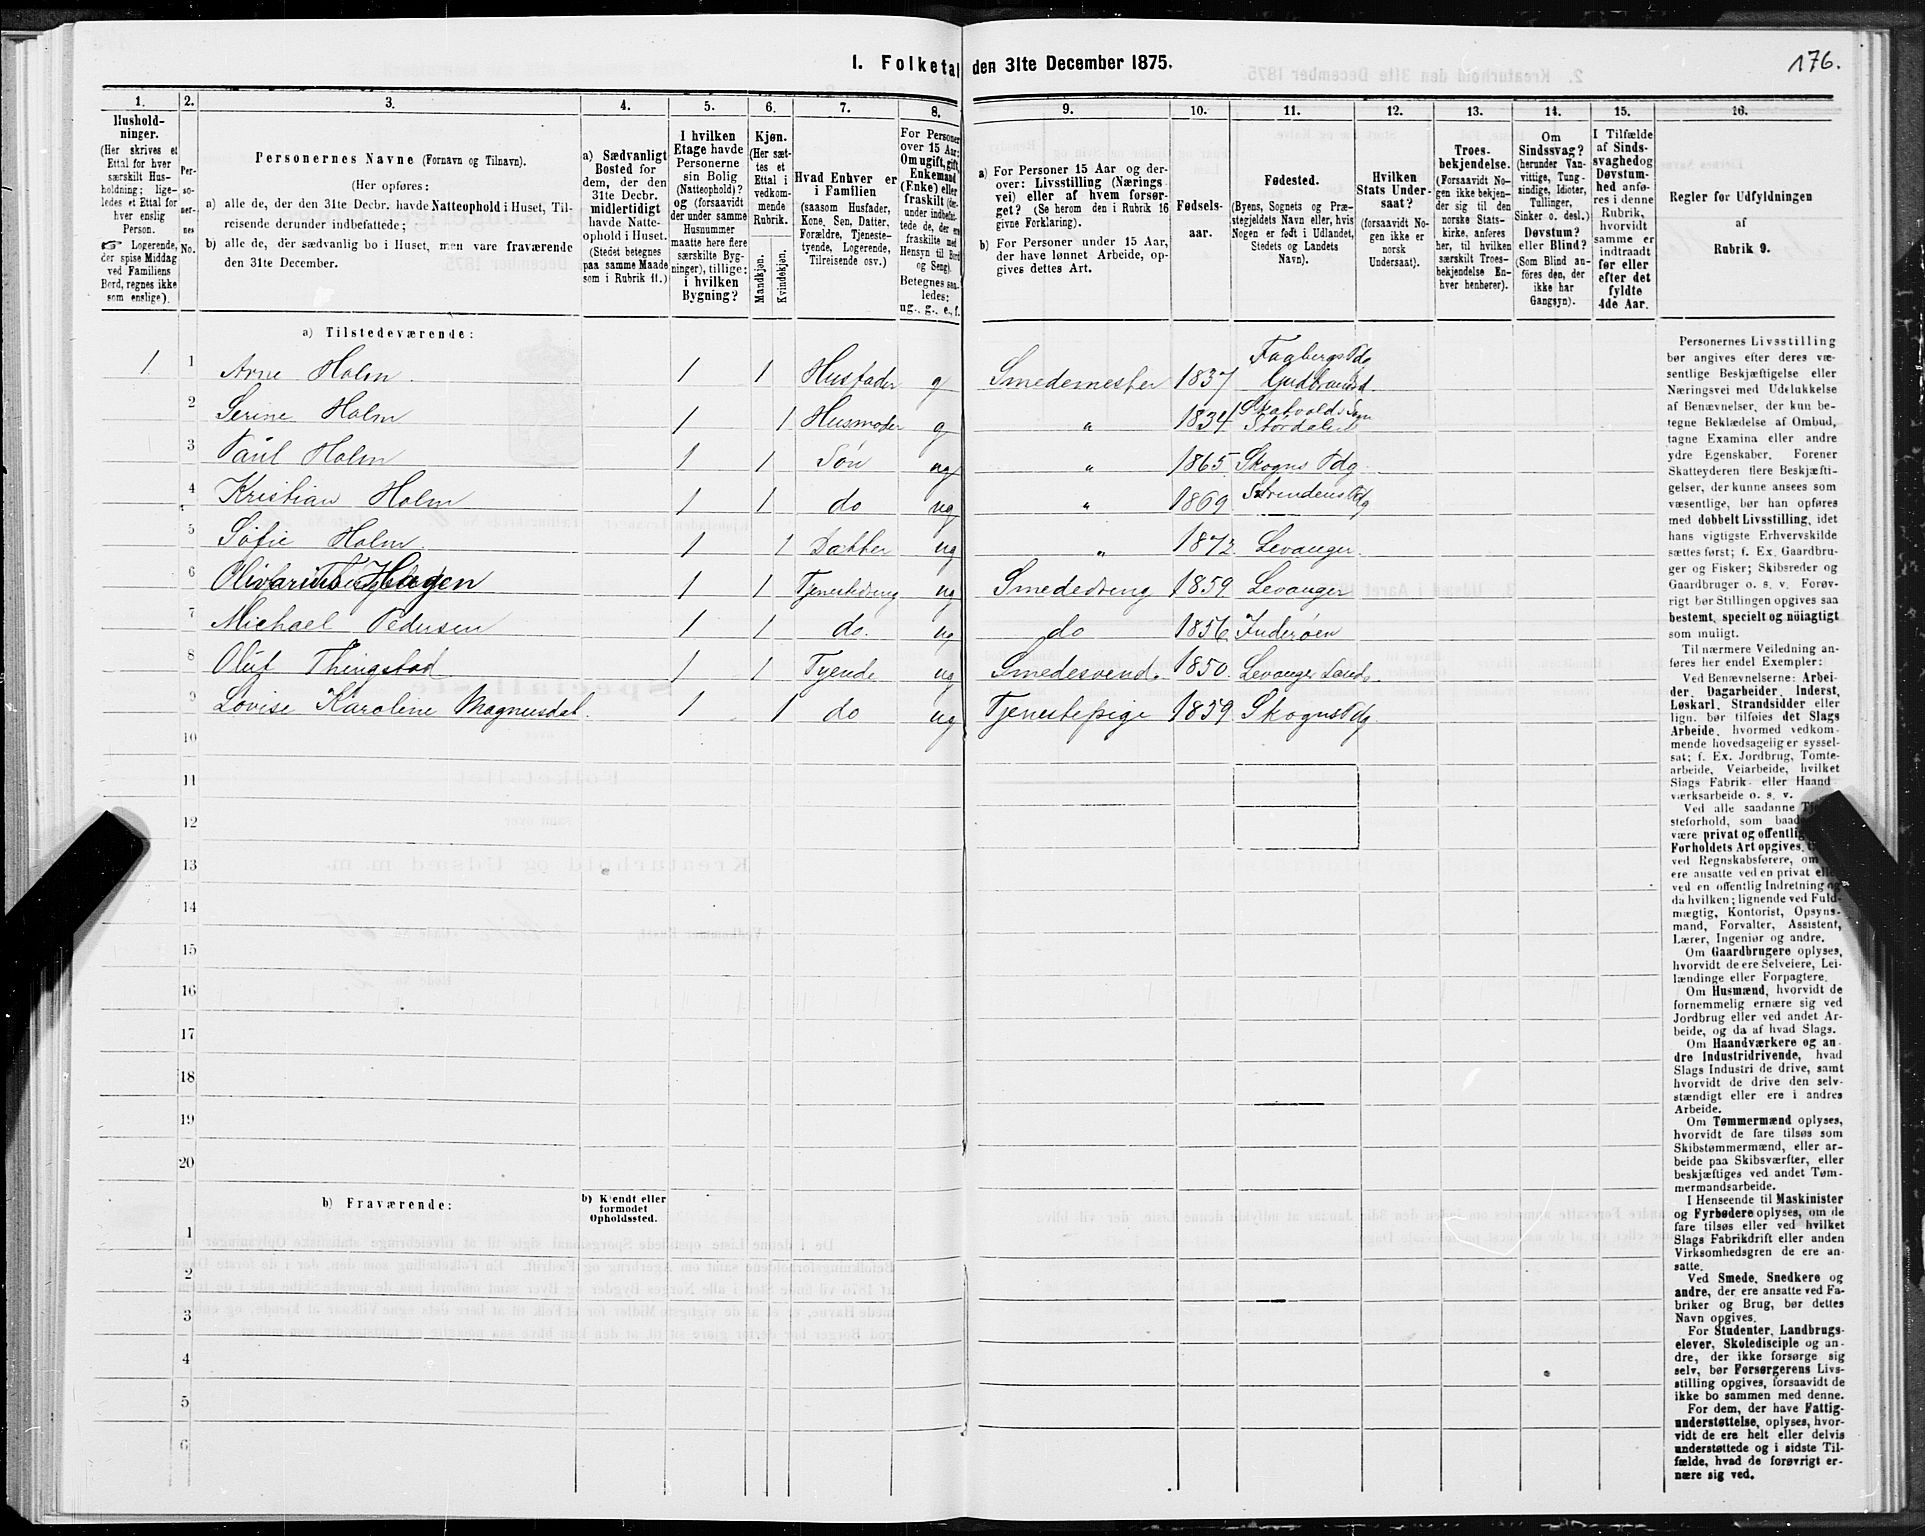 176.
1. Folketal den 31te December 1875.
1. 2. 3. 4. 5. 6. 7. 8. 9. 10. 11. 12. 13. 14. 15. 16.
Hushold-
ninger.
(Her skrives et
Ettal for hver
særskilt Hus-
holdning; lige-
ledes et Ettal for
hver enslig
Person.
☞ Logerende,
der spise Middag
ved Familiens
Bord, regnes ikke
som enslige).
Per-
so-
ner-
nes
No.
Personernes Navne (Fornavn og Tilnavn).
(Her opføres:
a) alle de, der den 31te Decbr. havde Natteophold i Huset, Til-
reisende derunder indbefattede;
b) alle de, der sædvanlig bo i Huset, men vare fraværende
den 31te December.
a) Sædvanligt
Bosted for
dem, der den
31te Decbr.
midlertidigt
havde Natte-
ophold i Huset.
(Stedet betegnes
paa samme Maade
som i Rubrik 11.)
I hvilken
Etage havde
Personerne
sin Bolig
(Natteophold)?
og (forsaavidt
der under samme
Husnummer
maatte høre flere
særskilte Byg-
ninger), tillige:
i hvilken
Bygning?
Kjøn.
(Her sæt-
tes et
Ettal i
vedkom-
mende
Rubrik.
Mandkjøn.
Kvindekjøn.
Hvad Enhver er
i Familien
(saasom Husfader,
Kone, Søn, Datter,
Forældre, Tjeneste-
tyende, Logerende,
Tilreisende osv.)
For Personer
over 15 Aar:
Om ugift, gift,
Enkemand
(Enke) eller
fraskilt (der-
under indbefat-
tede de, der ere
fraskilte med
Hensyn til Bord
og Seng).
Betegnes saa-
ledes:
ug., g., e., f.
a) For Personer 15 Aar og der-
over: Livsstilling (Nærings
vei) eller af hvem forsør-
get? (Se herom den i Rubrik 16
givne Forklaring).
b) For Personer under 15 Aar,
der have lønnet Arbeide, op-
gives dettes Art.
Fødsels-
aar.
Fødested.
(Byens, Sognets og Præ-
stegjeldets Navn eller, hvis
Nogen er født i Udlandet,
Stedets og Landets
Navn).
Hvilken
Stats Under-
saat?
(forsaavidt No-
gen ikke er
norsk
Undersaat).
Troes-
bekjendelse.
(Forsaavidt No-
gen ikke bekjen-
der sig til den
norske Stats-
kirke, anføres
her, til hvilken
særskilt Troes-
bekjendelse En-
hver henhører).
Om
Sindssvag?
(herunder Van-
vittige, Tung-
sindige, Idioter,
Tullinger,
Sinker o. desl.)
Døvstum?
eller Blind?
(Som Blind an-
føres den, der
ikke har
Gangsyn).
I Tilfælde
af Sinds-
svaghed og
Døvstum-
hed anfø-
res i denne
Rubrik,
hvorvidt
samme er
indtraadt
før eller
efter det
fyldte
4de Aar.
Regler for Udfyldningen
af
Rubrik 9.
a) Tilstedeværende:
1 1 Arne Holm 1 1 Husfader g Smedemester 1837 Faabergs Pdg Gudbransd.
2 Serine Holm 1 1 Husmoder g „ 1834 Skatvolds Sogn Størdalen
3 Paul Holm 1 1 Søn ug „ 1865 Skogns Pdg.
4 Kristian Holm 1 1 do ug „ 1869 Strindens Pdg
5 Sofie Holm 1 1 Datter ug „ 1872 Levanger.
6 Olivarius Hagen 1 1 Tjenestedreng ug Smededreng 1859 Levanger
7 Michael Pedersen 1 1 do. ug do 1856 Inderøen
8 Oluf Thingstad 1 1 Tyende ug Smedesvend. 1850. Levanger Lands.
9 Lovise Karoline Magnusdat. 1 1 do ug Tjenestepige 1859 Skogns Pdg.
10
11
12
13
14
15
16
17
18
19
20
b) Fraværende:
b) Kjendt eller
formodet
Opholdssted.
1
2
3
4
5
6
Personernes Livsstilling
bør angives efter deres væ-
sentlige Beskjæftigelse eller
Næringsvei med Udelukkelse
af Benævnelser, der kun be-
tegne Beklædelse af Ombud,
tagne Examina eller andre
ydre Egenskaber. Forener
Skatteyderen flere Beskjæfti-
gelser, der kunne ansees som
væsentlige, bør han opføres
med dobbelt Livsstilling, idet
hans vigtigste Erhvervskilde
sættes først; f. Ex. Gaardbru-
ger og Fisker; Skibsreder og
Gaardbruger o. s. v. Forøv-
rigt bør Stillingen opgives saa
bestemt, specielt og nøiagtigt
som muligt.
Til nærmere Veiledning an-
føres her endel Exempler:
Ved Benævnelserne: Arbei-
der, Dagarbeider, Inderst,
Løskarl, Strandsidder eller
lign. bør tilføies det Slags
Arbeide, hvormed vedkom-
mende hovedsagelig er syssel-
sat; f. Ex. Jordbrug, Tomte-
arbeide, Veiarbeide, hvilket
Slags Fabrik- eller Haand-
værksarbeide o. s. v.
Ved alle saadanne
steforhold, som
være privat og
Forholdets Art opgives.
ved Regnskabsførere, om
ere ansatte ved en privat
ved en offentlig Indretning og
da hvilken; lignende ved Fuld-
mægtig, Kontorist, Opsyns-
mand, Forvalter, Assistent,
Lærer, Ingeniør og andre.
Om Gaardbrugere oplyses,
hvorvidt de ere Selveiere, Lei-
lændinge eller Forpagtere.
Om Husmænd, hvorvidt de
fornemmelig ernære sig ved
Jordbrug eller ved andet Ar-
beide, og da af hvad Slags.
Om Haandværkere og an-
dre Industridrivende, hvad
Slags Industri de drive, samt
hvorvidt de drive den selv-
stændigt eller ere i andres
Arbeide.
Om Tømmermænd oplyses,
hvorvidt de fare tilsøs som
Skibstømmermænd, eller ar-
beide paa Skibsværfter, eller
beskjæftiges ved andet Tøm-
mermandsarbeide.
I Henseende til Maskinister
og Fyrbødere oplyses, om de
fare tilsøs eller ved hvilket
Slags Fabrikdrift eller anden
Virksomhedsgren de ere an-
satte.
Ved Smede, Snedkere og
andre, der ere ansatte ved Fa-
briker og Brug, bør dettes
Navn opgives.
For Studenter, Landbrugs-
elever, Skoledisciple og an-
dre, der ikke forsørge sig
selv, bør Forsørgerens Livs-
stilling opgives, forsaavidt de
ikke bo sammen med denne.
For dem, der have Fattig-
understøttelse, oplyses, hvor-
vidt de ere helt eller delvis
understøttede og i sidste Til-
fælde, hvad de forøvrigt er-
nære sig ved.